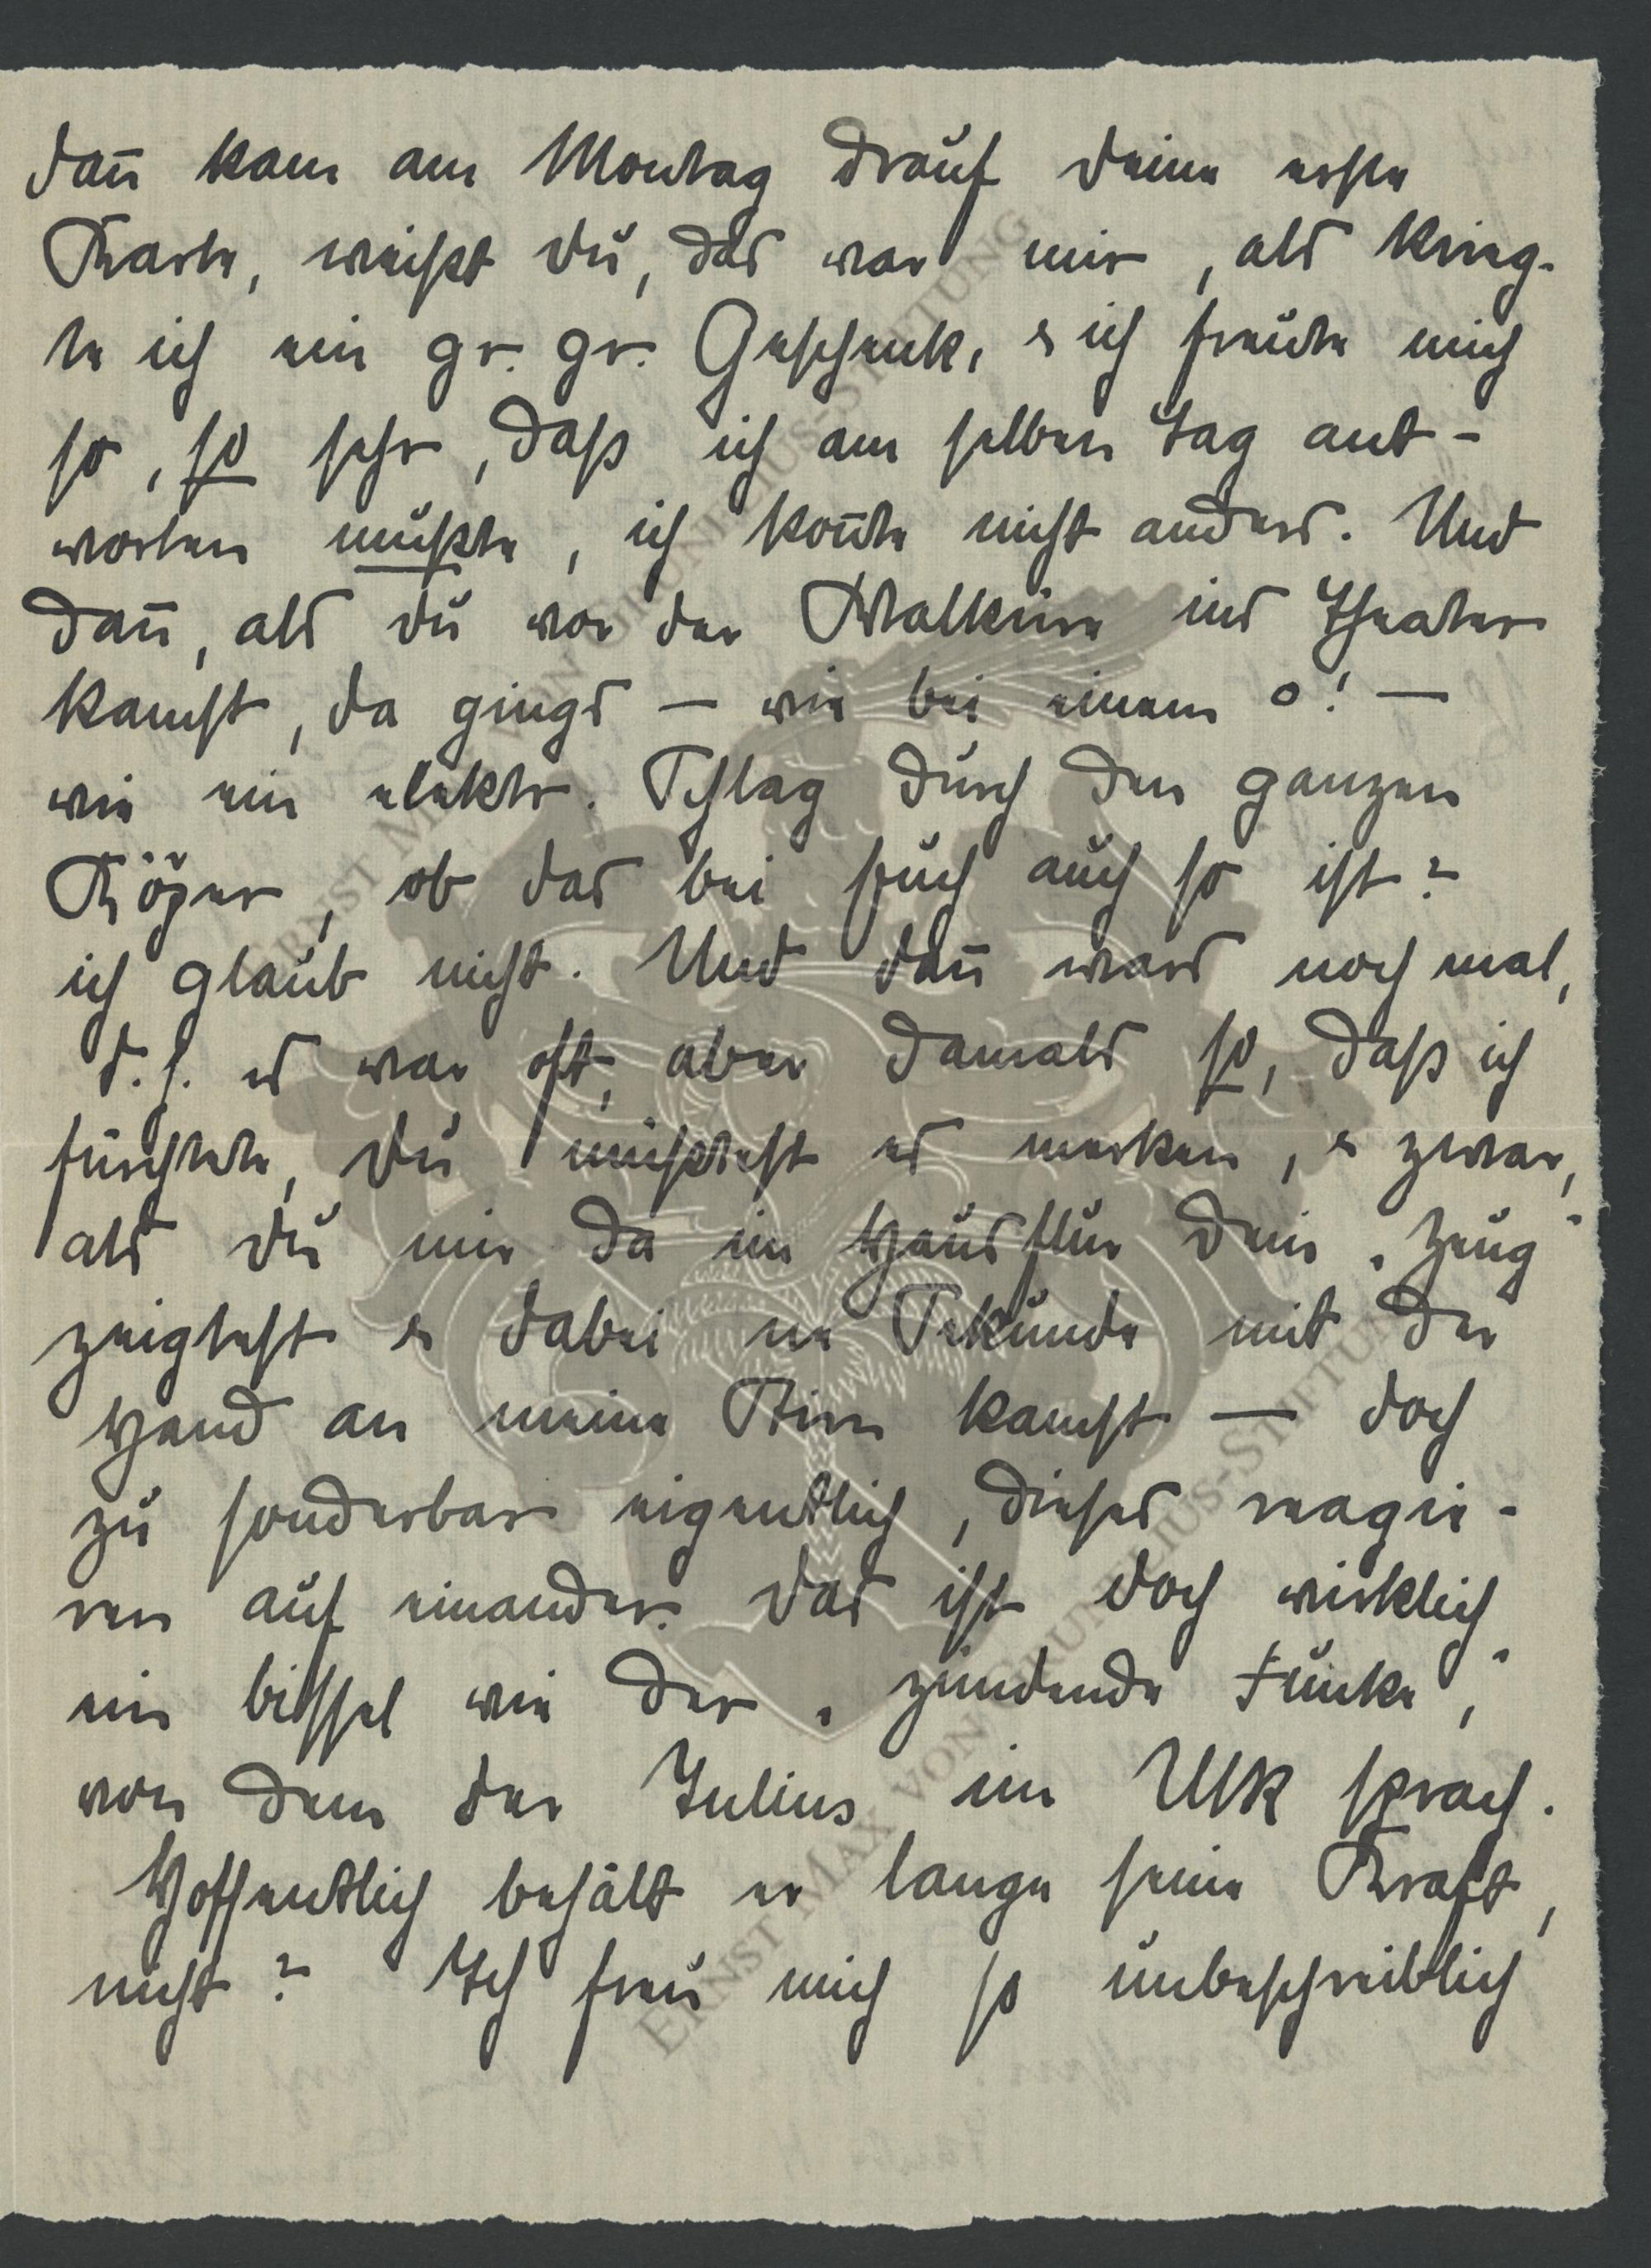 dan̄ kam am Montag drauf deine erste
Karte, weißt du, das war mir, als krieg-
te ich ein gr. gr. Geschenk, & ich freute mich
so, so sehr, daß ich am selben Tag ant-
worten mußte, ich kon̄te nicht anders. Und
dan̄, als du vor der Walküre ins Theater
kamst, da gings – wie bei einem o! –
wie ein elektr. Schlag durch den ganzen
Köper, ob das bei euch auch so ist?
ich glaub nicht. Und dan̄ wars noch mal,
d. h. es war oft, aber damals so, daß ich
fürchtete, du müßtest es merken, & zwar,
als du mir da im Hausflur dein „Zeug"
zeigtest & dabei ne Sekunde mit der
Hand an meine Stirn kamst — doch
zu sonderbar eigentlich, dieses reagie-
ren auf einander. Das ist doch wirklich
ein bissel wie der „zündende Funke",
von dem der Julius im Ulk sprach.
Hoffentlich behält er lange seine Kraft,
nicht? Ich freu mich so unbeschreiblich
ERNST MAX VON GRUNELIUS-STIFTUNG
ERNST MAX VON GRUNELIUS-STIFTUNG